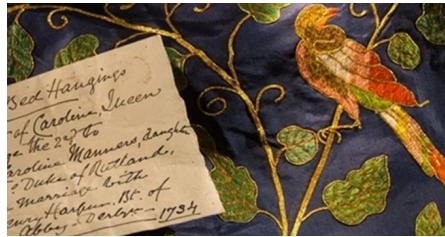 Bed Hangings
of Caroline, Queen
the 2nd to
Caroline Manners, daughter
Duke of Rutland,
marriage with
Harpur. Bt. of
Abbey - Derby - 1734